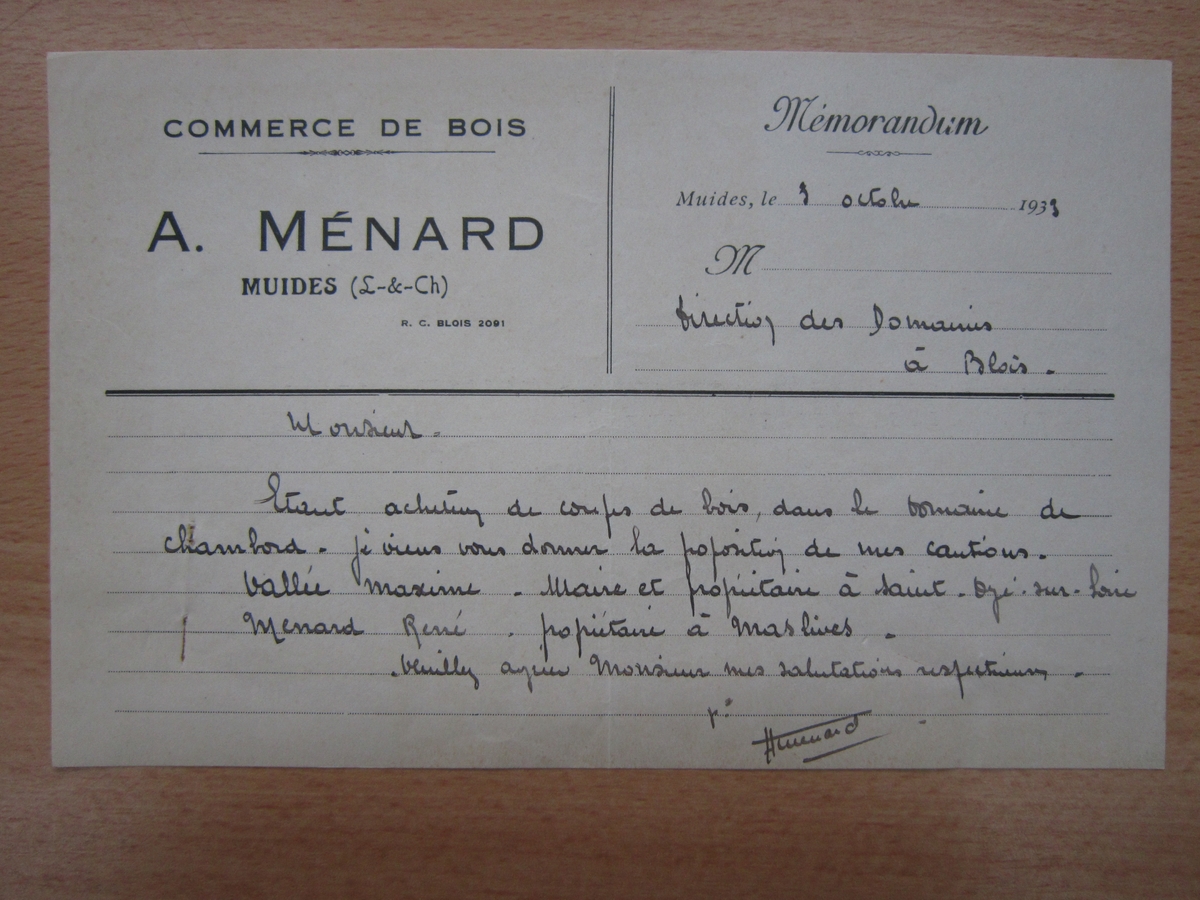 COMMERCE DE BOIS
A. MÉNARD
MUIDES (L-&-Ch)
R. C. BLOIS 2091
Mémorandum
Muides, le 3 octobre 1933
M
Direction des Domaines
à Blois.
Monsieur.
Etant acheteur de coupes de bois, dans le Domaine de
Chambord. je viens vous donner la proposition de mes cautions.
Vallée Maxime. Maire et propriétaire à Saint-Dyé-sur-Loire
Menard René. propriétaire à Maslives.
Veuillez agréer Monsieur mes salutations respectueuses.
AMenard